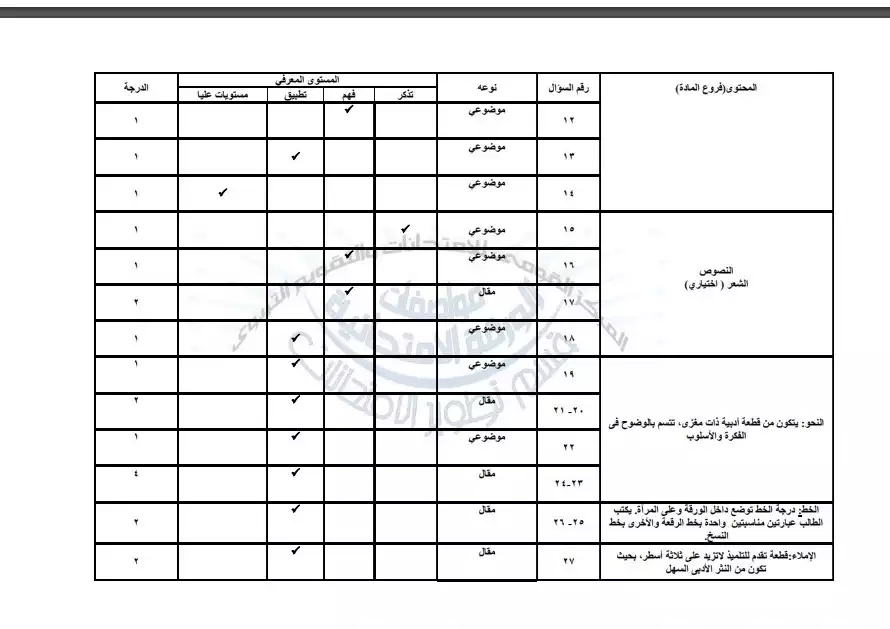 المحتوى(فروع المادة) رقم السؤال نوعه المستوى المعرفي الدرجة
تذكر فهم تطبيق مستويات عليا
١٢ موضوعي ✓ ١
١٣ موضوعي ✓ ١
١٤ موضوعي ✓ ١
النصوص
الشعر ( اختياري)
١٥ موضوعي ✓ ١
١٦ موضوعي ✓ ١
١٧ مقال ✓ ٢
١٨ موضوعي ✓ ١
النحو: يتكون من قطعة أدبية ذات مغزى، تتسم بالوضوح فى
الفكرة والأسلوب
١٩ موضوعي ✓ ١
٢٠ـ ٢١ مقال ✓ ٢
٢٢ موضوعي ✓ ١
٢٣ـ٢٤ مقال ✓ ٤
الخط: درجة الخط توضع داخل الورقة وعلى المرآة. يكتب
الطالب عبارتين مناسبتين واحدة بخط الرقعة والأخرى بخط
النسخ.
٢٥ـ ٢٦ مقال ✓ ٢
الإملاء:قطعة تقدم للتلميذ لاتزيد على ثلاثة أسطر، بحيث
تكون من النثر الأدبى السهل
٢٧ مقال ✓ ٢
المركز القومى للامتحانات والتقويم التربوى
مواصفات
الورقة الامتحانية
قسم تطوير الامتحانات